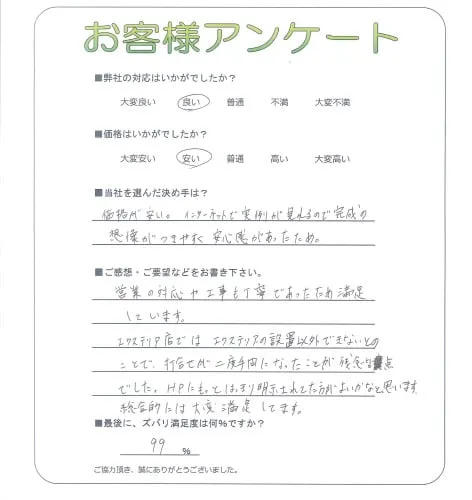 お客様アンケート
■弊社の対応はいかがでしたか？
大変良い 良い 普通 不満 大変不満
■価格はいかがでしたか？
大変安い 安い 普通 高い 大変高い
■当社を選んだ決め手は？
価格が安い。インターネットで実例が見れるので完成の
想像がつきやすく安心感があったため。
■ご感想・ご要望などをお書き下さい。
営業の対応や工事も丁寧であったため満足
しています。
エクステリア店ではエクステリアの設置以外できないとの
ことで、打合せが二度手間になったことが残念な点
でした。HPにもっとはっきり明示されてた方がよいかなと思います
総合的には大変満足してます。
■最後に、ズバリ満足度は何％ですか？
99 ％
ご協力頂き、誠にありがとうございました。